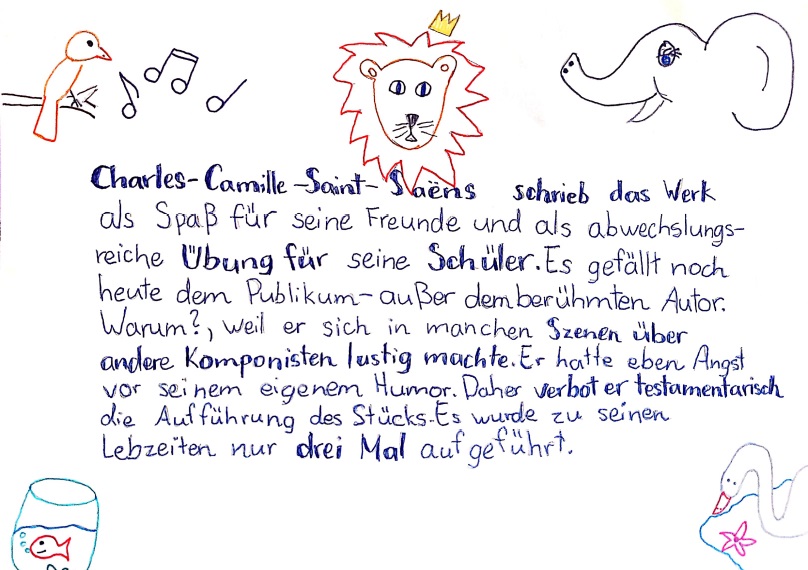 Charles-Camille-Saint-Saëns schrieb das Werk
als Spaß für seine Freunde und als abwechslungs-
reiche Übung für seine Schüler. Es gefällt noch
heute dem Publikum - außer dem berühmten Autor.
Warum?, weil er sich in manchen Szenen über
andere Komponisten lustig machte. Er hatte eben Angst
vor seinem eigenem Humor. Daher verbot er testamentarisch
die Aufführung des Stücks. Es wurde zu seinen
Lebzeiten nur drei Mal aufgeführt.